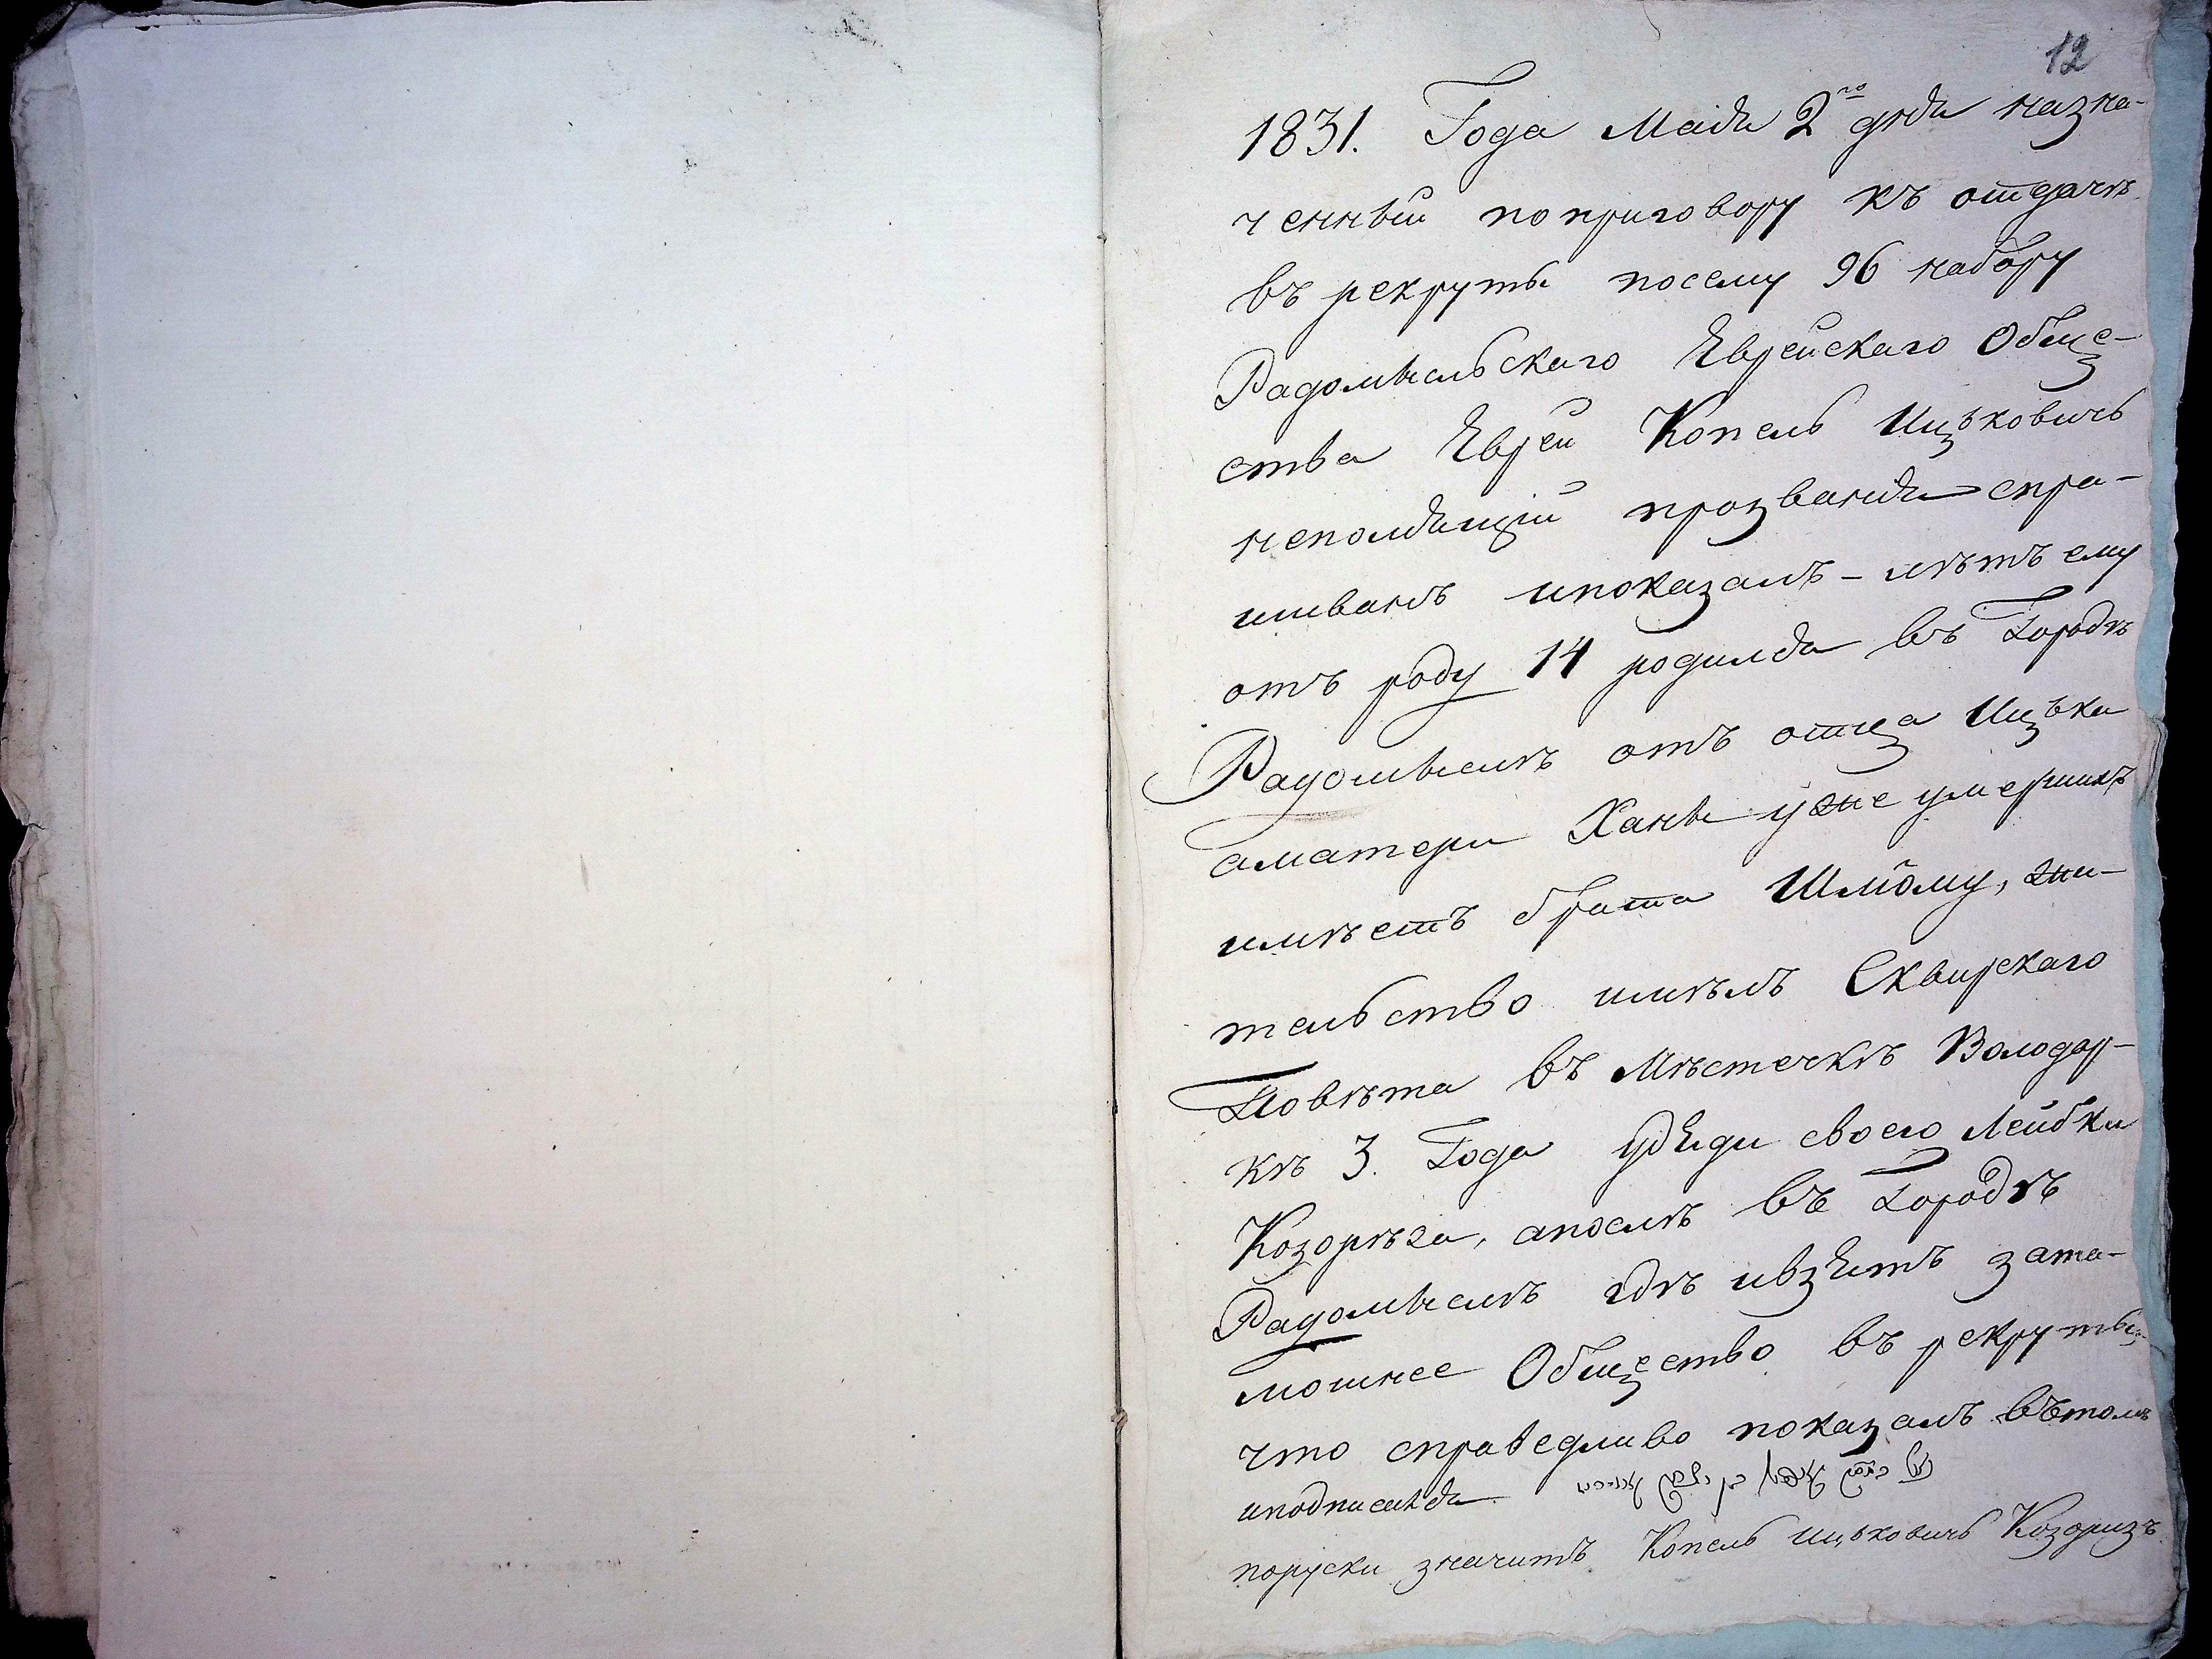 12
1831. Года Маія 2го дня назна-
ченный по приговору къ отдачѣ
въ рекруты посему 96 набору
Радомысльскаго Еврейскаго Обще-
ства Еврей Копель Ицьковичъ
непомнящій прозванія спра-
шиванъ ипоказалъ - лѣтъ ему
отъ роду 14 родился въ Городѣ
Радомыслѣ отъ отца Ицька
аматери Ханы уже умершихъ
имѣетъ брата Шлёму, жи-
тельство имѣлъ Сквирскаго
Повѣта въ Мѣстечкѣ Володар-
кѣ 3. Года удяди своего Лейбки
Козорѣза, апослѣ въ Городѣ
Радомыслѣ гдѣ ивзятъ зата-
мошнее Общество въ рекруты
что справедливо показалъ вътомъ
иподписался
поруски значитъ Копель Ицьковичъ Козоризъ